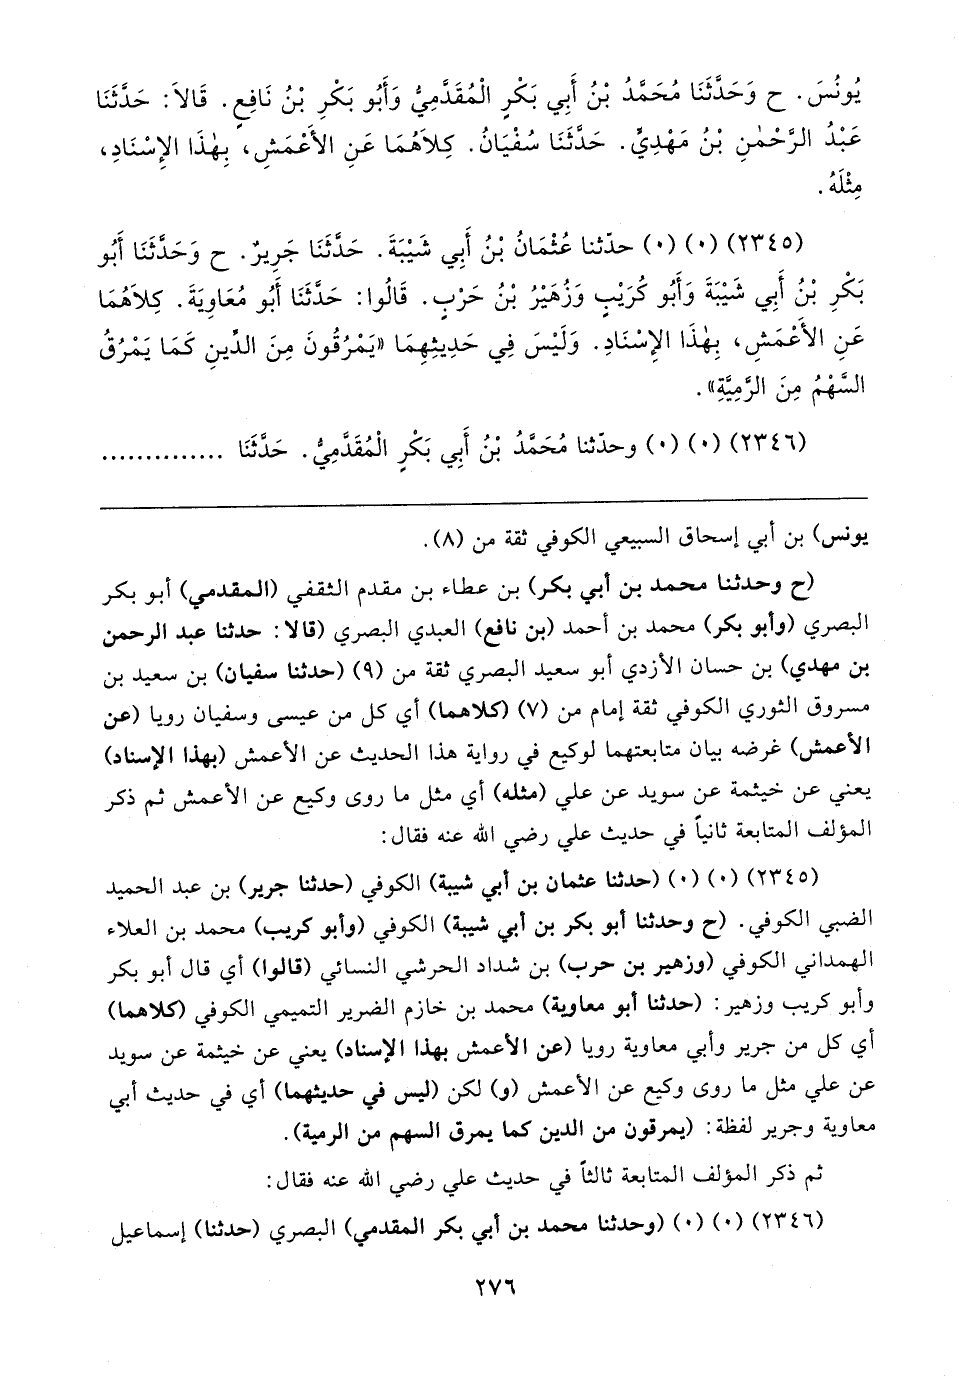 يُونُسَ. ح وَحَدَّثَنَا مُحَمَّدُ بْنُ أَبِي بَكْرٍ الْمُقَدَّمِيُّ وَأَبُو بَكْرِ بْنُ نَافِعٍ. قَالاَ: حَدَّثَنَا
عَبْدُ الرَّحْمٰنِ بْنُ مَهْدِيٍّ. حَدَّثَنَا سُفْيَانُ. كِلاَهُمَا عَنِ الأَعْمَشِ، بِهٰذَا الإِسْنَادِ،
مِثْلَهُ.
(٢٣٤٥) (٠) (٠) حدّثنا عُثْمَانُ بْنُ أَبِي شَيْبَةَ. حَدَّثَنَا جَرِيرٌ. ح وَحَدَّثَنَا أَبُو
بَكْرِ بْنُ أَبِي شَيْبَةَ وَأَبُو كُرَيْبٍ وَزُهَيْرُ بْنُ حَرْبٍ. قَالُوا: حَدَّثَنَا أَبُو مُعَاوِيَةَ. كِلاَهُمَا
عَنِ الأَعْمَشِ، بِهٰذَا الإِسْنَادِ. وَلَيْسَ فِي حَدِيثِهِمَا «يَمْرُقُونَ مِنَ الدِّينِ كَمَا يَمْرُقُ
السَّهْمُ مِنَ الرَّمِيَّةِ».
(٢٣٤٦) (٠) (٠) وحدّثنا مُحَمَّدُ بْنُ أَبِي بَكْرٍ الْمُقَدَّمِيُّ. حَدَّثَنَا ..............
يونس) بن أبي إسحاق السبيعي الكوفي ثقة من (٨).
(ح وحدثنا محمد بن أبي بكر) بن عطاء بن مقدم الثقفي (المقدمي) أبو بكر
البصري (وأبو بكر) محمد بن أحمد (بن نافع) العبدي البصري (قالا: حدثنا عبد الرحمن
بن مهدي) بن حسان الأزدي أبو سعيد البصري ثقة من (٩) (حدثنا سفيان) بن سعيد بن
مسروق الثوري الكوفي ثقة إمام من (٧) (كلاهما) أي كل من عيسى وسفيان رويا (عن
الأعمش) غرضه بيان متابعتهما لوكيع في رواية هذا الحديث عن الأعمش (بهذا الإسناد)
يعني عن خيثمة عن سويد عن علي (مثله) أي مثل ما روى وكيع عن الأعمش ثم ذكر
المؤلف المتابعة ثانياً في حديث علي رضي الله عنه فقال:
(٢٣٤٥) (٠) (٠) (حدثنا عثمان بن أبي شيبة) الكوفي (حدثنا جرير) بن عبد الحميد
الضبي الكوفي. (ح وحدثنا أبو بكر بن أبي شيبة) الكوفي (وأبو كريب) محمد بن العلاء
الهمداني الكوفي (وزهير بن حرب) بن شداد الحرشي النسائي (قالوا) أي قال أبو بكر
وأبو كريب وزهير: (حدثنا أبو معاوية) محمد بن خازم الضرير التميمي الكوفي (كلاهما)
أي كل من جرير وأبي معاوية رويا (عن الأعمش بهذا الإسناد) يعني عن خيثمة عن سويد
عن علي مثل ما روى وكيع عن الأعمش (و) لكن (ليس في حديثهما) أي في حديث أبي
معاوية وجرير لفظة: (يمرقون من الدين كما يمرق السهم من الرمية).
ثم ذكر المؤلف المتابعة ثالثاً في حديث علي رضي الله عنه فقال:
(٢٣٤٦) (٠) (٠) (وحدثنا محمد بن أبي بكر المقدمي) البصري (حدثنا) إسماعيل
٢٧٦